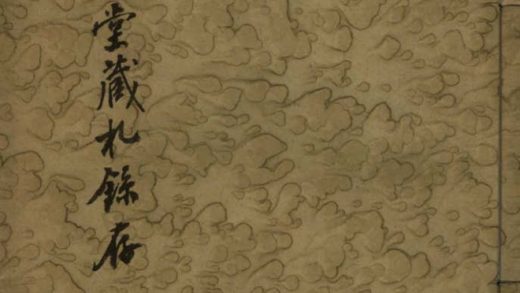 堂藏札錄存